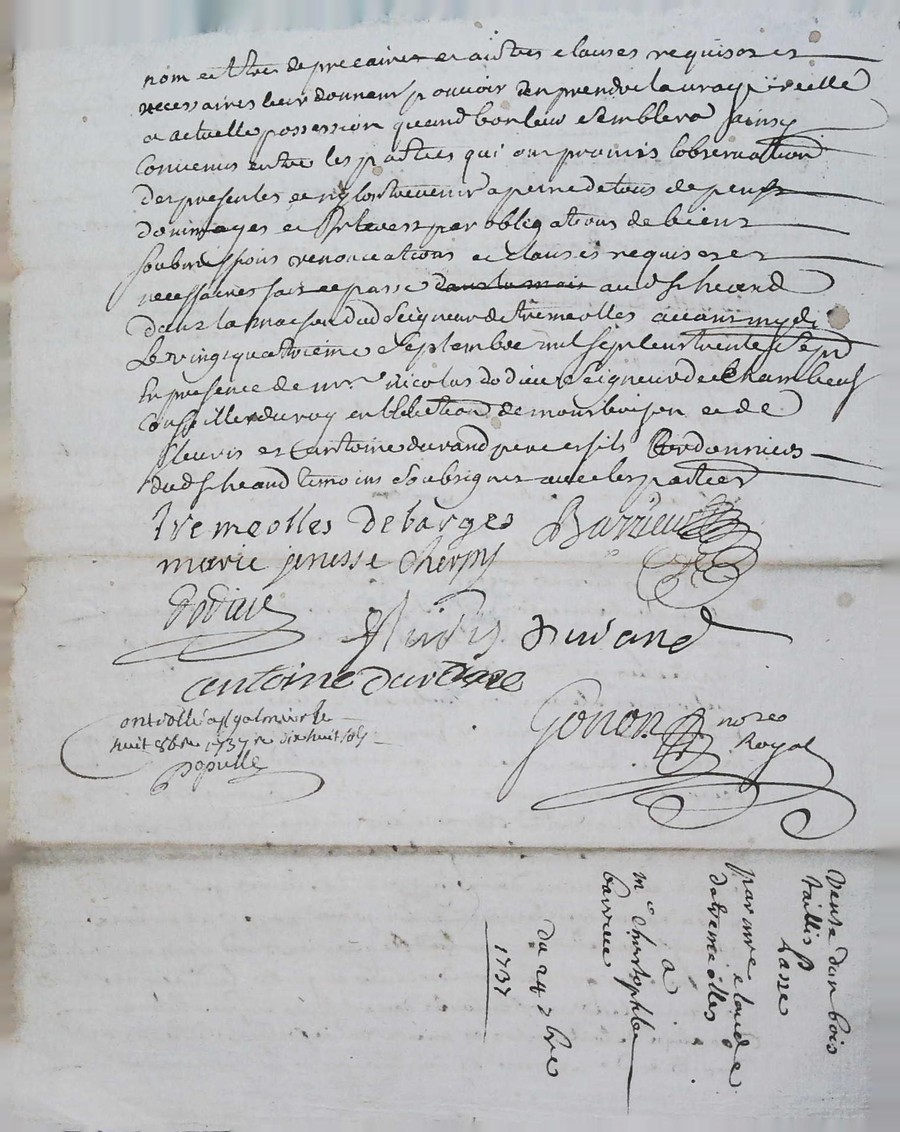 nom et titre de precaires et autres clauses requises et
necessaires leur donnent pouvoir den prendre la vraye reelle
et actuelle possession quand bon leur semblera jainsy
Convenus entre les parties qui ont promis lobservation
des presentes et ny contrevenir a peine de tous depens
dommages et par obligations de biens
soubmissions renonciations et clauses requises et
necessaires fait et passé dans la maison audt scheand
dans la maison dud Seigneur de tremeolles avant mydi
Le vingt quatrieme Septembre mil sept cent trente sept
En presence de mr nicolas dodieu Seigneur de chambeuf
Conseiller du roy en lelection de montbrison et de
fleuris et antoine durand pere et fils Cordonniers
dud scheand temoins soubsignes avec les parties
tremeolles debarges Barrieu
marie jenesse cherpy
dodieu
fleuris durand
antoine durand
Controllé a st galmier le
huit 8bre 1737 r dix huit sols
pepulle
Gonon nore
Royal
Vente dun bois
taillis p
Lasse
par mre claude
de tremeolles
a
me christophle
barrieu
du 24 7bre
1737